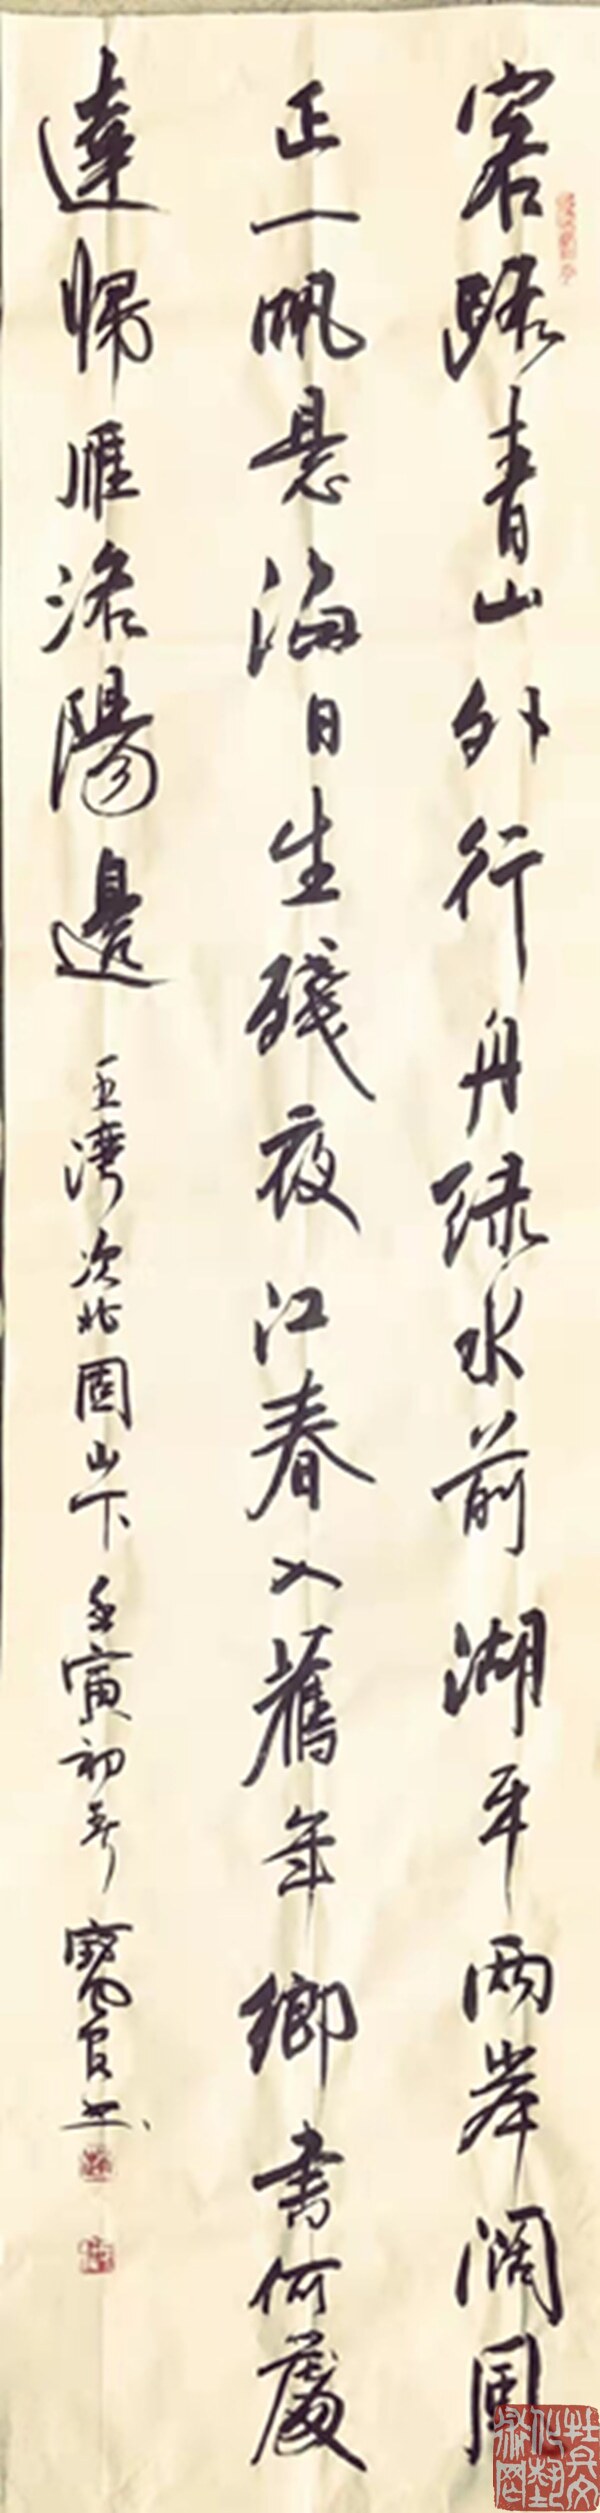 客路青山外行舟绿水前湖平两岸阔風
正一帆悬海日生殘夜江春入舊年鄉书何處
達歸雁洛陽邊
王灣次北固山下壬寅初春寳官书